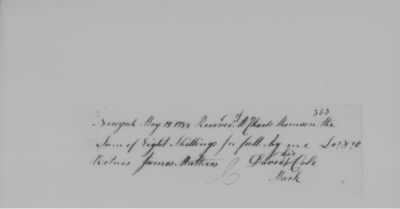 363
Newyork May 19 1788 Receved of Charls Thomson the
Sum of Eight Shillings In full by me £0:8:0
Witness James Mathers David his Cole
Mark